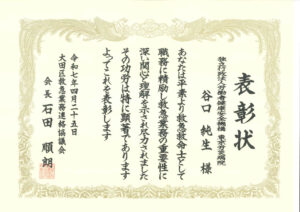 表彰状
独立行政法人労働者健康安全機構 東京労災病院
谷口 純生 様
あなたは平素より救急救命士として
職務に精励し救急業務の重要性に
深い関心と理解を示され尽力されました
その功労は特に顕著であります
よってこれを表彰します
令和七年四月二十五日
大田区救急業務連絡協議会
会長 石田 順朗